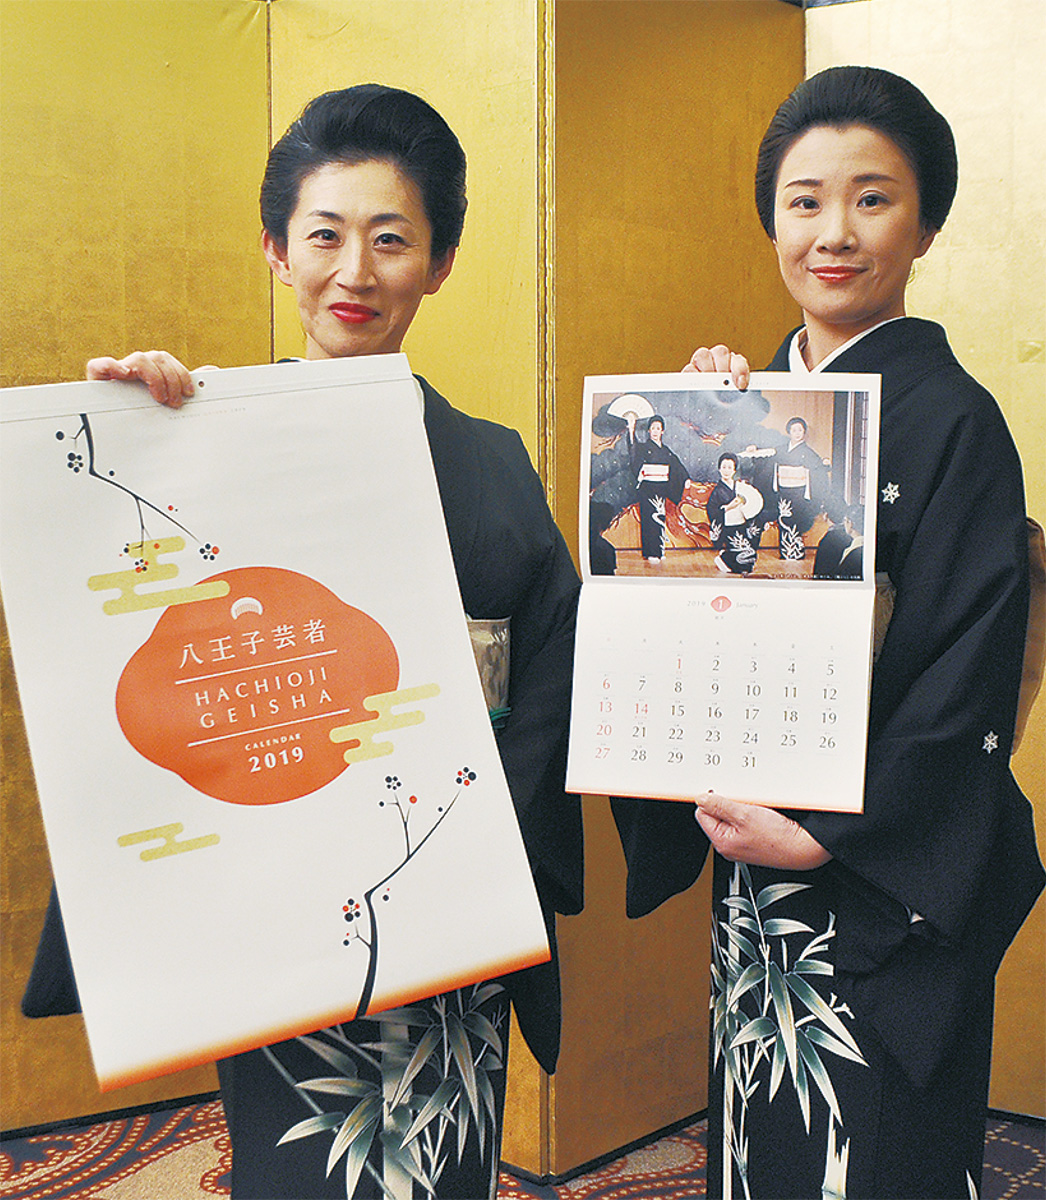 八王子芸者
HACHIOJI
GEISHA
CALENDAR
2019
2019 1 January
1 2 3 4 5
6 7 8 9 10 11 12
13 14 15 16 17 18 19
20 21 22 23 24 25 26
27 28 29 30 31